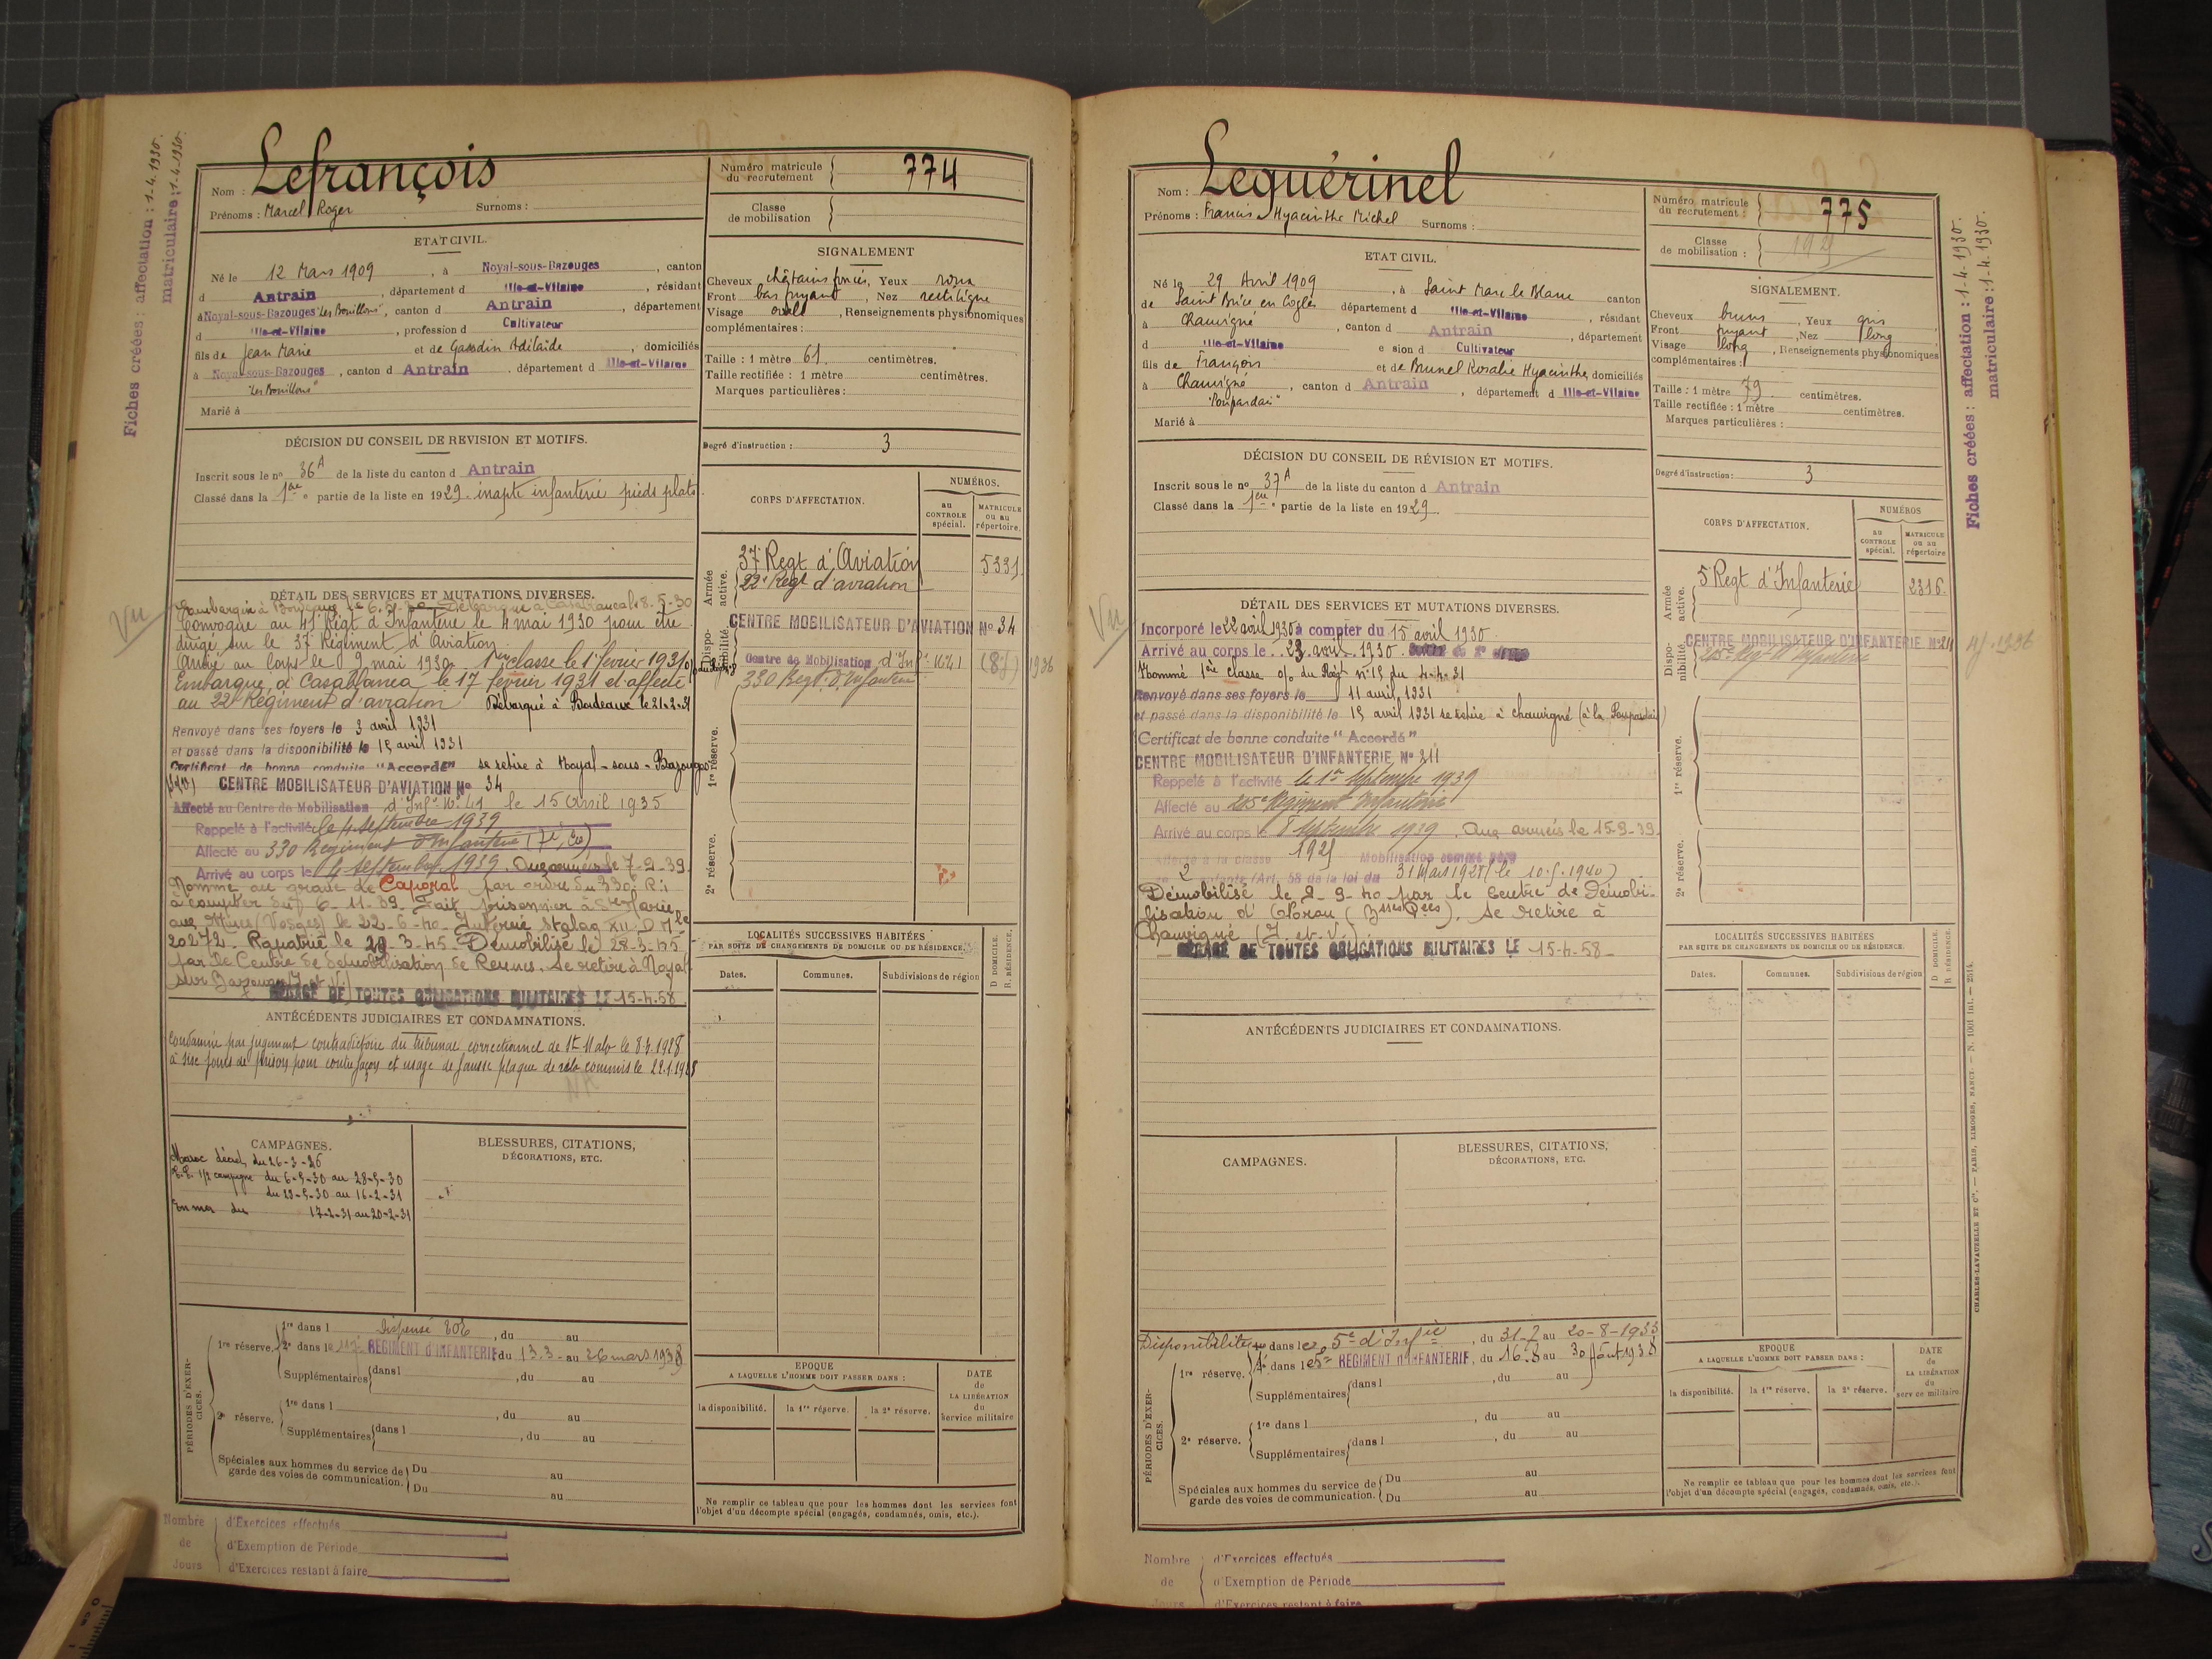 Fiches créées : affectation : 1-4-1930.
matriculaire : 1-4-1930.
Nom : Lefrançois
Prénoms : Marcel Roger Surnoms :
ETAT CIVIL.
Né le 12 Mars 1909, à Noyal-sous-Bazouges, canton
d Antrain, département d Ille-et-Vilaine, résidant
à Noyal-sous-Bazouges "Les Bouillons", canton d Antrain, département
d Ille-et-Vilaine, profession d Cultivateur
fils de Jean Marie et de Gaudin Adélaïde, domiciliés
à Noyal-sous-Bazouges, canton d Antrain, département d Ille-et-Vilaine
"Les Bouillons"
Marié à
DÉCISION DU CONSEIL DE REVISION ET MOTIFS.
Inscrit sous le nº 36 A de la liste du canton d Antrain
Classé dans la 1ère partie de la liste en 1929. inapte infanterie pieds plats.
DÉTAIL DES SERVICES ET MUTATIONS DIVERSES.
Vu
Embarqué à Bordeaux le 6.5.30 Débarqué à Casablanca le 8.5.30
Convoqué au 41e Régt d'Infanterie le 4 mai 1930 pour être
dirigé sur le 37e Régiment d'Aviation.
Arrivé au Corps le 9 mai 1930. 1ère classe le 1er février 1931
Embarqué à Casablanca le 17 février 1931 et affecté
au 22e Régiment d'aviation. Débarqué à Bordeaux le 21-2-31
Renvoyé dans ses foyers le 3 avril 1931
et passé dans la disponibilité le 15 avril 1931
Certificat de bonne conduite "Accordé" se retire à Noyal-sous-Bazouges
CENTRE MOBILISATEUR D'AVIATION Nº 34
Affecté au Centre de Mobilisation d'Infie Nº 41 le 15 Avril 1935
Rappelé à l'activité le 4 Septembre 1939
Affecté au 330 Régiment d'Infanterie (7e Cie)
Arrivé au corps le 4 septembre 1939. Aux armées le 7-9-39
Nommé au grade de Caporal par ordre du 330e R.I
à compter du 6-11-39. Fait prisonnier à Ste Marie
aux Mines (Vosges) le 22-6-40. Interné Stalag XII D Mle
20272. Rapatrié le 20-3-45. Démobilisé le 28-3-45
par le Centre de démobilisation de Rennes. Se retire à Noyal
sur Bazouges (I. et V.)
DÉGAGÉ DE TOUTES OBLIGATIONS MILITAIRES LE 15-4-58
ANTÉCÉDENTS JUDICIAIRES ET CONDAMNATIONS.
Condamné par jugement contradictoire du tribunal correctionnel de St Malo le 8.3.1928
à six jours de prison pour contrefaçon et usage de fausse plaque de vélo commis le 22.1.1928
CAMPAGNES.
Maroc décret du 26-3-26
1/2 campagne du 6-5-30 au 28-5-30
du 29-5-30 au 16-2-31
En mer du 17-2-31 au 20-2-31
BLESSURES, CITATIONS,
DÉCORATIONS, ETC.
PÉRIODES D'EXERCICES.
1re réserve.
1re dans l Dispensé , du au
2e dans le RÉGIMENT d'INFANTERIE du 13.3. au 26 mars 1938
Supplémentaires dans l , du au
2e réserve.
1re dans l , du au
Supplémentaires dans l , du au
Spéciales aux hommes du service de
garde des voies de communication.
Du au
Du au
Nombre de Jours
d'Exercices effectués
d'Exemption de Période
d'Exercices restant à faire
Numéro matricule
du recrutement 774
Classe
de mobilisation
SIGNALEMENT
Cheveux châtains foncés, Yeux roux
Front bas fuyant, Nez rectiligne
Visage ovale, Renseignements physionomiques
complémentaires :
Taille : 1 mètre 61 centimètres.
Taille rectifiée : 1 mètre centimètres.
Marques particulières :
Degré d'instruction : 3
CORPS D'AFFECTATION.
NUMÉROS.
au CONTROLE spécial.
MATRICULE ou au répertoire.
Armée active.
37e Régt d'Aviation 5331
22e Régt d'aviation
Disponibilité
CENTRE MOBILISATEUR D'AVIATION Nº 34
Centre de Mobilisation d'Infie Nº 41 1936
330 Régt d'Infanterie
1re réserve.
2e réserve.
LOCALITÉS SUCCESSIVES HABITÉES
PAR SUITE DE CHANGEMENTS DE DOMICILE OU DE RÉSIDENCE.
Dates. Communes. Subdivisions de région
D DOMICILE. R. RÉSIDENCE.
EPOQUE
A LAQUELLE L'HOMME DOIT PASSER DANS :
la disponibilité. la 1re réserve. la 2e réserve.
DATE
de
LA LIBÉRATION
du
Service militaire
Ne remplir ce tableau que pour les hommes dont les services font
l'objet d'un décompte spécial (engagés, condamnés, omis, etc.).
Nom : Lequérinel
Prénoms : Francis Hyacinthe Michel Surnoms :
ETAT CIVIL.
Né le 29 Avril 1909, à Saint Marc le Blanc canton
de Saint Brice en Cogles département d Ille-et-Vilaine, résidant
à Chauvigné, canton d Antrain, département
d Ille-et-Vilaine e sion d Cultivateur
fils de François et de Brunel Rosalie Hyacinthe, domiciliés
à Chauvigné, canton d Antrain, département d Ille-et-Vilaine
"Poupardais"
Marié à
DÉCISION DU CONSEIL DE RÉVISION ET MOTIFS.
Inscrit sous le nº 37 A de la liste du canton d Antrain
Classé dans la 1ère partie de la liste en 1929.
DÉTAIL DES SERVICES ET MUTATIONS DIVERSES.
Vu
Incorporé le 22 avril 1930 à compter du 15 avril 1930
Arrivé au corps le 23 avril 1930
Nommé 1ère classe o/ du Régt nº 15 du 4-4-31
Renvoyé dans ses foyers le 11 avril 1931
et passé dans la disponibilité le 15 avril 1931 se retire à Chauvigné (à la Poupardais)
Certificat de bonne conduite "Accordé"
CENTRE MOBILISATEUR D'INFANTERIE Nº 211
Rappelé à l'activité le 1er Septembre 1939
Affecté au Régiment Infanterie
Arrivé au corps le 8 Septembre 1939. Aux armées le 15-9-39.
la classe 1925 Mobilisation comme père
2 enfants (Art. 58 de la loi du 31 Mars 1928)
Démobilisé le 2-9-40 par le Centre de Démobi-
lisation d'Oloron (Bsses Pées). Se retire à
Chauvigné (I. et V.)
DÉGAGÉ DE TOUTES OBLIGATIONS MILITAIRES LE 15-4-58
ANTÉCÉDENTS JUDICIAIRES ET CONDAMNATIONS.
CAMPAGNES.
BLESSURES, CITATIONS,
DÉCORATIONS, ETC.
PÉRIODES D'EXERCICES.
Disponibilité dans le 5e d'Infie, du 31-7 au 20-8-1933
1re réserve.
dans le RÉGIMENT D'INFANTERIE, du 16.8 au 30 Août 1938
Supplémentaires dans l , du au
2e réserve.
1re dans l , du au
Supplémentaires dans l , du au
Spéciales aux hommes du service de
garde des voies de communication.
Du au
Du au
Nombre de Jours
d'Exercices effectués
d'Exemption de Période
d'Exercices restant à faire
Numéro matricule
du recrutement : 775
Classe
de mobilisation :
SIGNALEMENT.
Cheveux bruns, Yeux gris
Front fuyant, Nez long
Visage long, Renseignements physionomiques
complémentaires :
Taille : 1 mètre 79 centimètres.
Taille rectifiée : 1 mètre centimètres.
Marques particulières :
Degré d'instruction : 3
CORPS D'AFFECTATION.
NUMÉROS
au CONTROLE spécial.
MATRICULE ou au répertoire
Armée active.
5 Régt d'Infanterie 2316
Disponibilité
CENTRE MOBILISATEUR D'INFANTERIE Nº 211
1re réserve.
2e réserve.
LOCALITÉS SUCCESSIVES HABITÉES
PAR SUITE DE CHANGEMENTS DE DOMICILE OU DE RÉSIDENCE.
Dates. Communes. Subdivisions de région
D DOMICILE. R RÉSIDENCE.
EPOQUE
A LAQUELLE L'HOMME DOIT PASSER DANS :
la disponibilité. la 1re réserve. la 2e réserve.
DATE
de
LA LIBÉRATION
du
service militaire
Ne remplir ce tableau que pour les hommes dont les services font
l'objet d'un décompte spécial (engagés, condamnés, omis, etc.).
Fiches créées : affectation : 1-4-1930.
matriculaire : 1-4-1930.
CHARLES-LAVAUZELLE ET Cie. — PARIS, LIMOGES, NANCY. — N. 1001 int. — 2514.